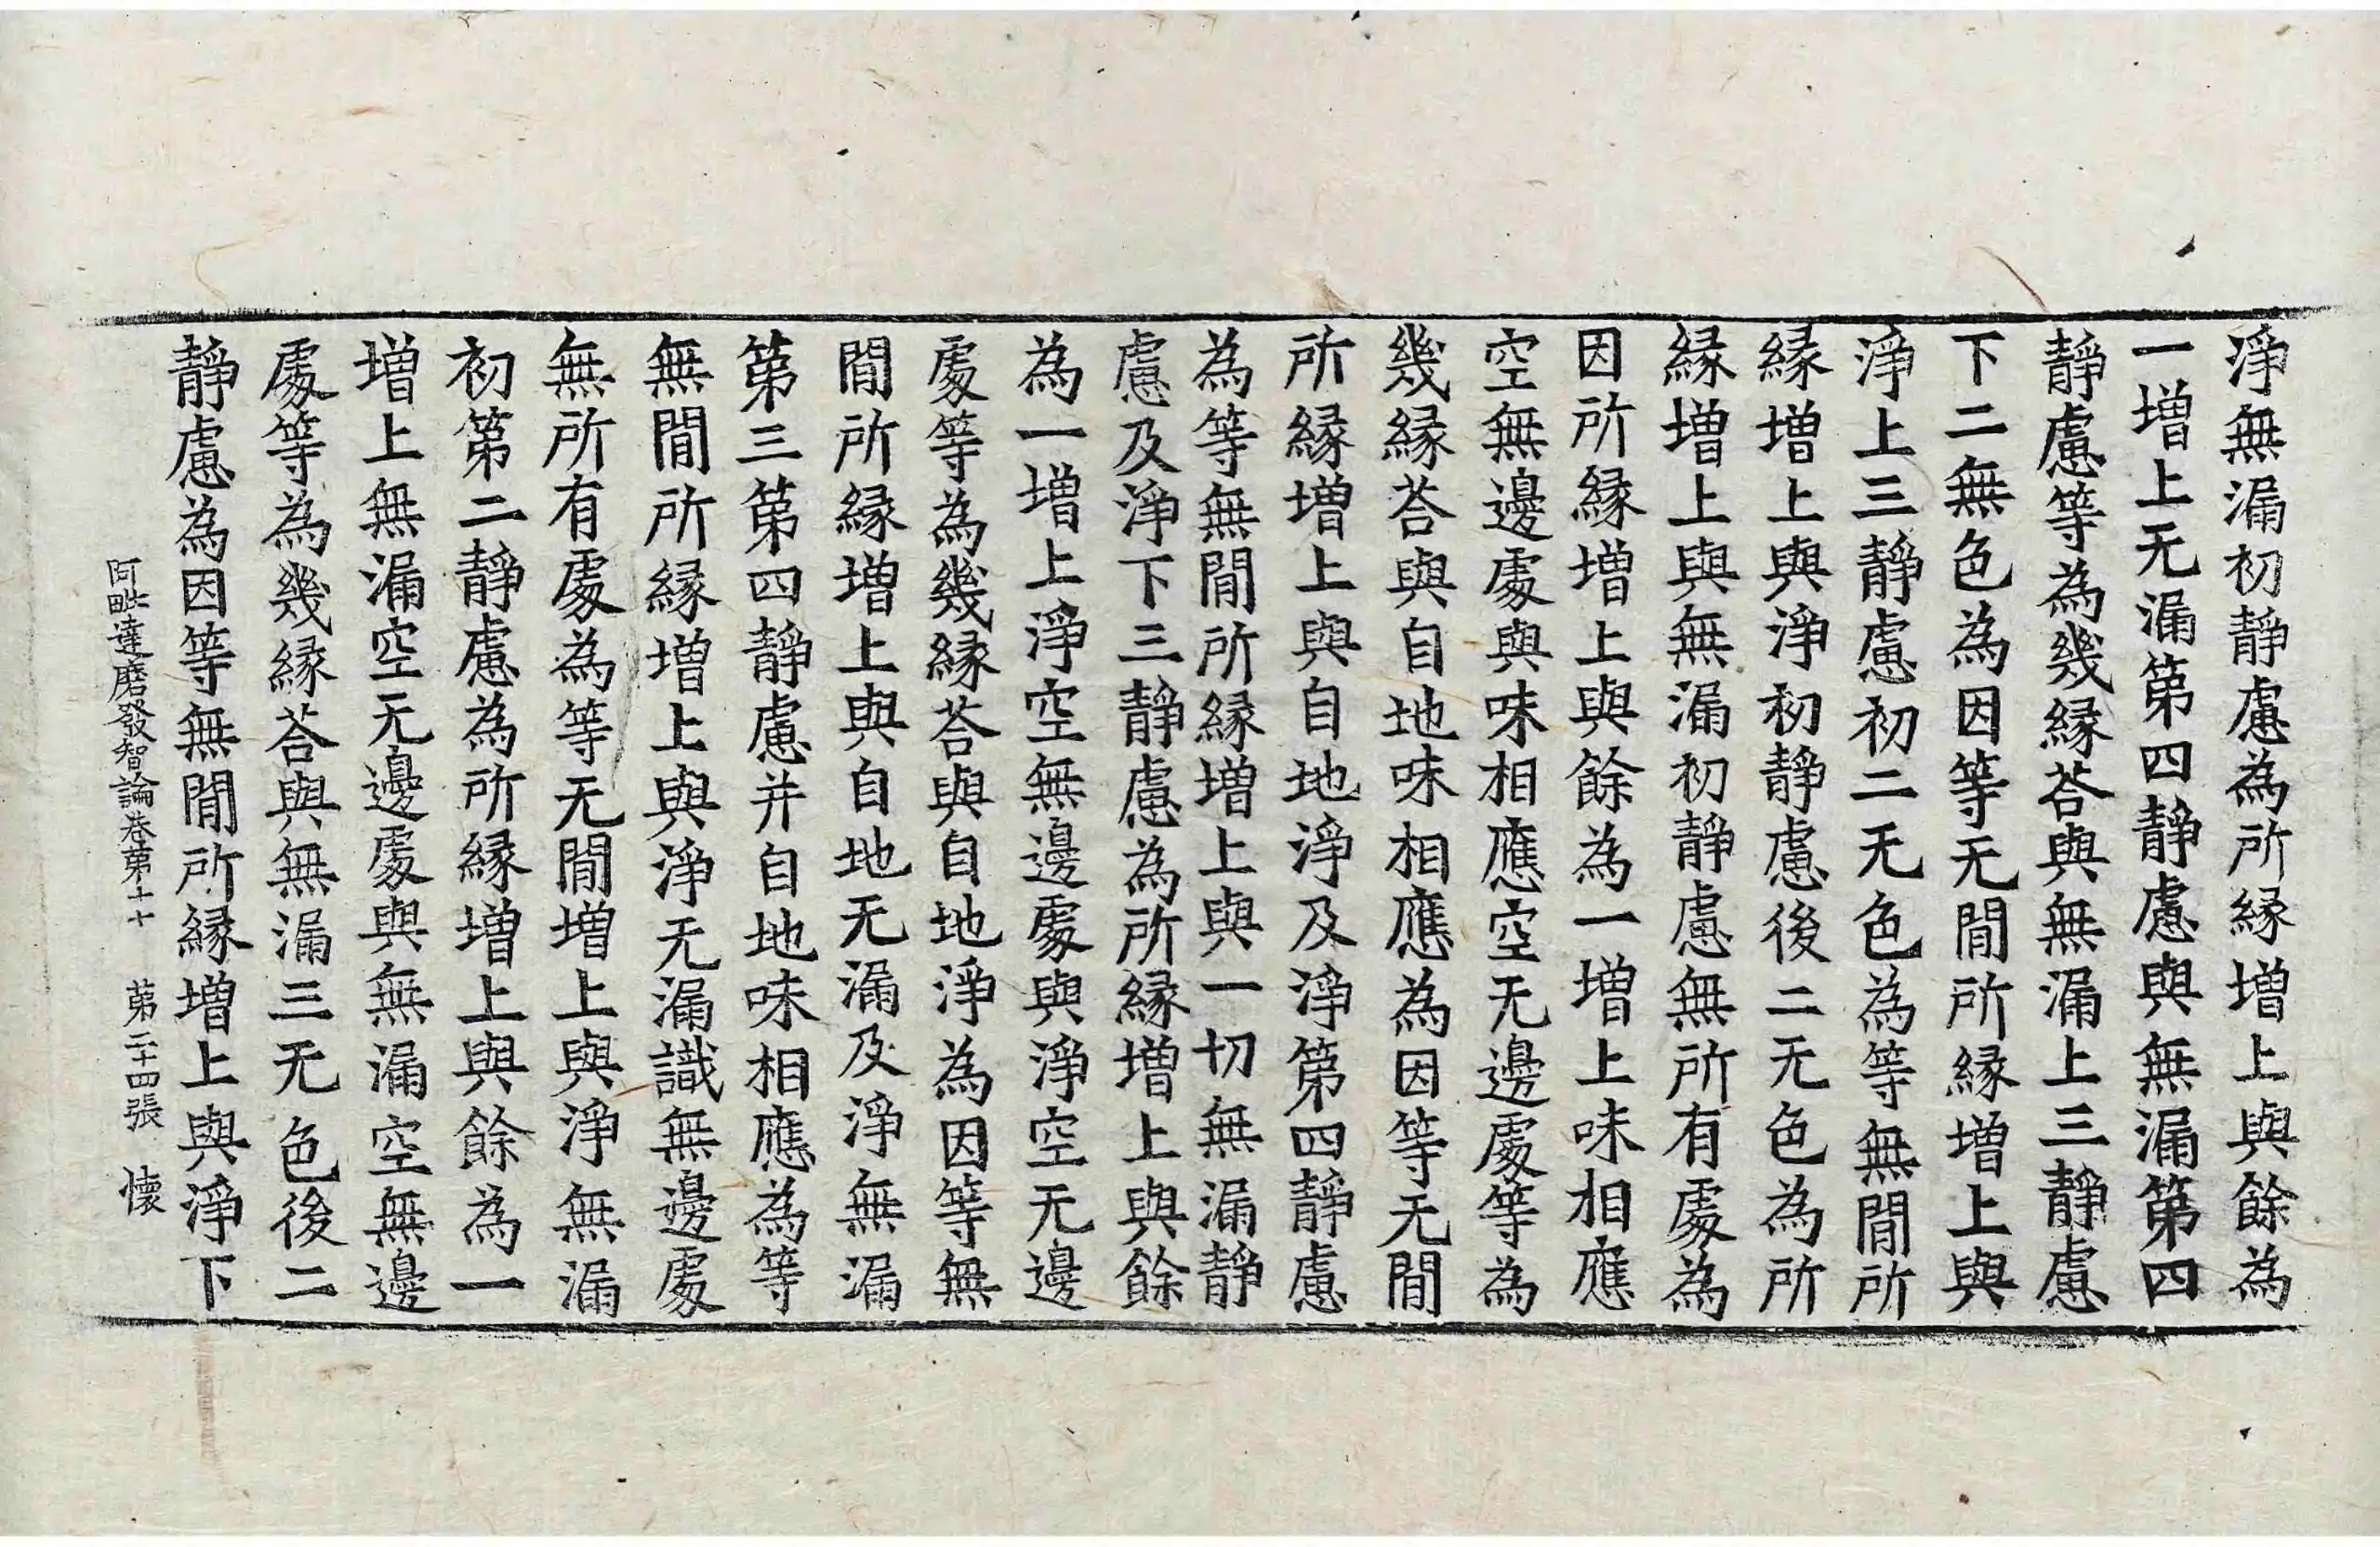 淨無漏初靜慮為所縁增上與餘為
一增上无漏第四靜慮與無漏第四
靜慮等為幾縁荅與無漏上三靜慮
下二無色為因等无間所縁增上與
淨上三靜慮初二无色為等無間所
縁增上與淨初靜慮後二无色為所
縁增上與無漏初靜慮無所有處為
因所縁增上與餘為一增上味相應
空無邊處與味相應空无邊處等為
幾縁荅與自地味相應為因等无間
所縁增上與自地淨及淨第四靜慮
為等無間所縁增上與一切無漏靜
慮及淨下三靜慮為所縁增上與餘
為一增上淨空無邊處與淨空无邊
處等為幾縁荅與自地淨為因等無
間所縁增上與自地无漏及淨無漏
第三第四靜慮并自地味相應為等
無間所縁增上與淨无漏識無邊處
無所有處為等无間增上與淨無漏
初第二靜慮為所縁增上與餘為一
增上無漏空无邊處與無漏空無邊
處等為幾縁荅與無漏三无色後二
靜慮為因等無間所縁增上與淨下
阿毗達磨發智論卷第十七 第二十四張 懐